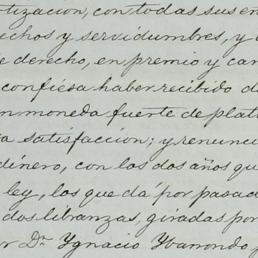 tizacion, con todas sus en
echos y servidumbres, y
e derecho, en premio y can
confiesa haber recibido d
n moneda fuerte de plat
a satisfaccion; y renunci
dinero, con los dos años qu
ley, los que dá por pasad
dos libranzas, giradas por
r Dn Ygnacio Ybarrondo